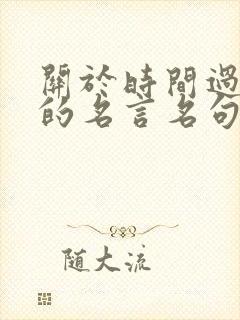 關於時間過
的名言名句
随大流